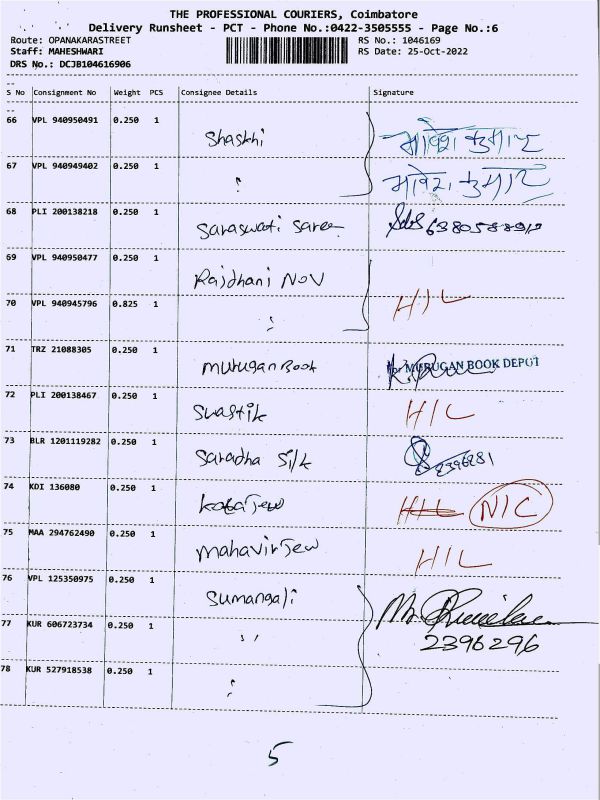 THE PROFESSIONAL COURIERS, Coimbatore
Delivery Runsheet - PCT - Phone No.:0422-3505555 - Page No.:6
Route: OPANAKARASTREET RS No.: 1046169
Staff: MAHESHWARI RS Date: 25-Oct-2022
DRS No.: DCJB104616906
S No Consignment No Weight PCS Consignee Details Signature
66 VPL 940950491 0.250 1 Shaskhi
67 VPL 940949402 0.250 1
68 PLI 200138218 0.250 1 Saraswati Saree
69 VPL 940950477 0.250 1 Rajdhani NOV
70 VPL 940945796 0.825 1 H/L
71 TRZ 21088305 0.250 1 murugan Book MURUGAN BOOK DEPOT
72 PLI 200138467 0.250 1 Swastik H/L
73 BLR 1201119282 0.250 1 Saradha Silk 2396281
74 KDI 136080 0.250 1 N/C
75 MAA 294762490 0.250 1 mahavir Jew H/L
76 VPL 125350975 0.250 1 Sumangali
77 KUR 606723734 0.250 1 ,, 2396296
78 KUR 527918538 0.250 1
5